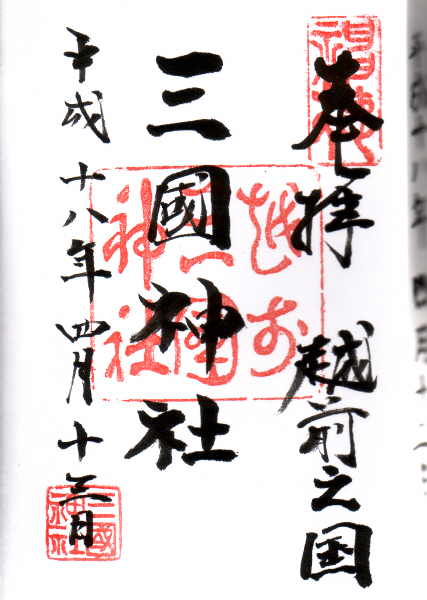 奉拝 越前之国
三國神社
平成十八年四月十三日
越前
三國
神社
三國
神社